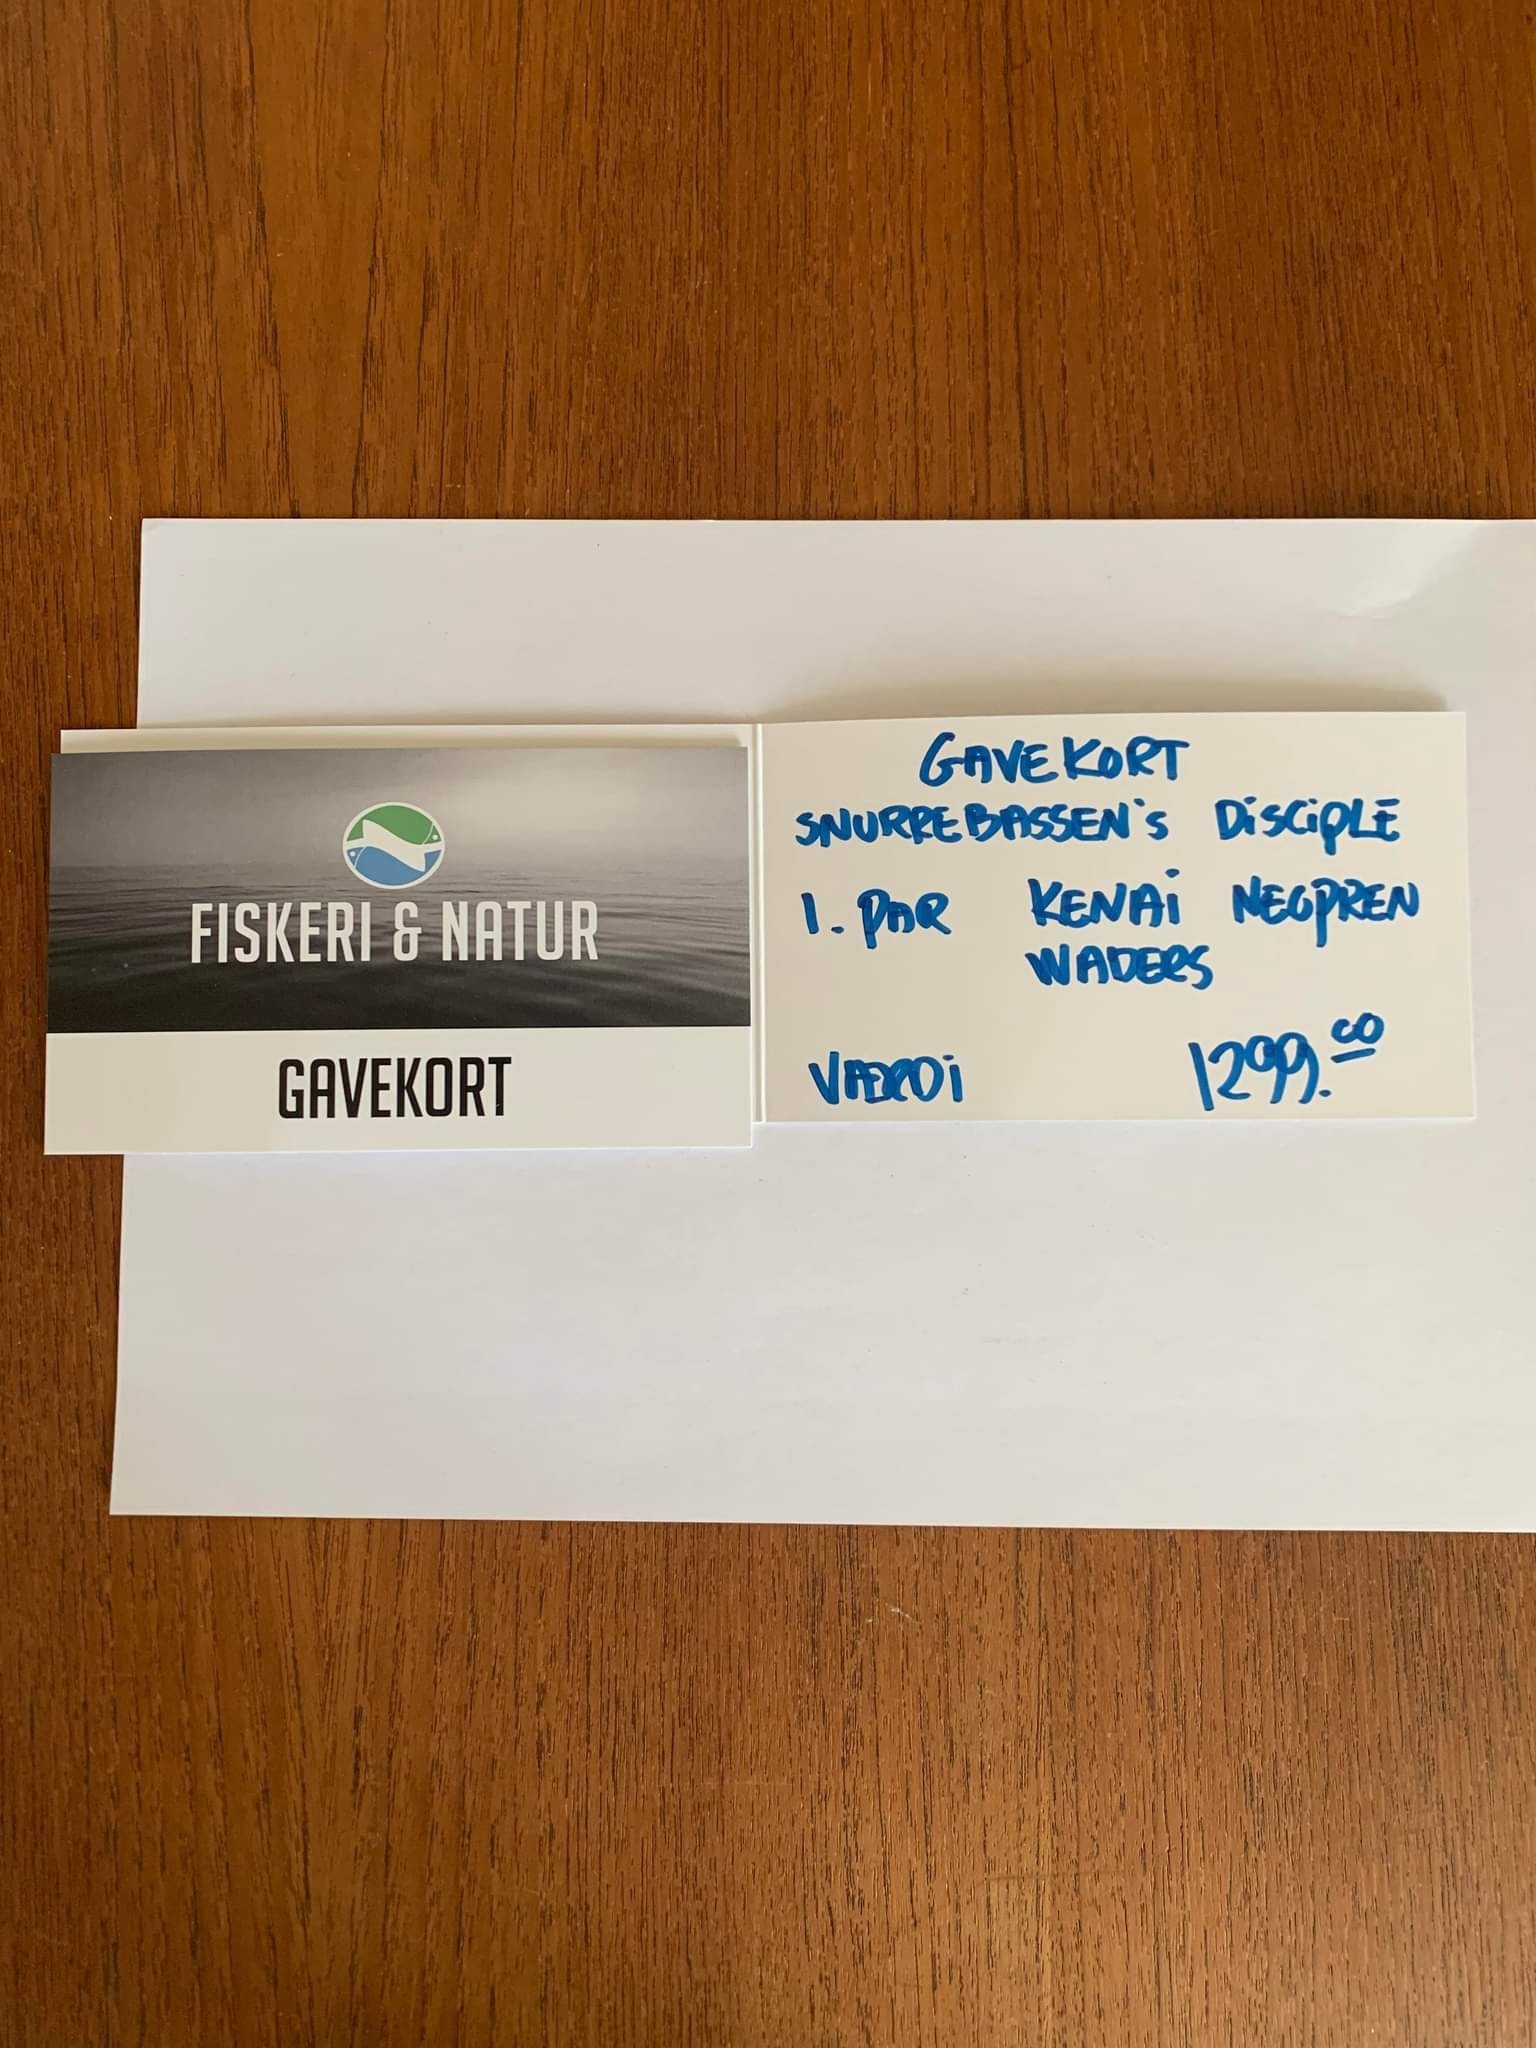 FISKERI & NATUR
GAVEKORT
GAVEKORT
SNURREBASSEN's DiSCiPLE
1. PAR KENAi NEOPREN
WADERS
VÆRDi 1299.00